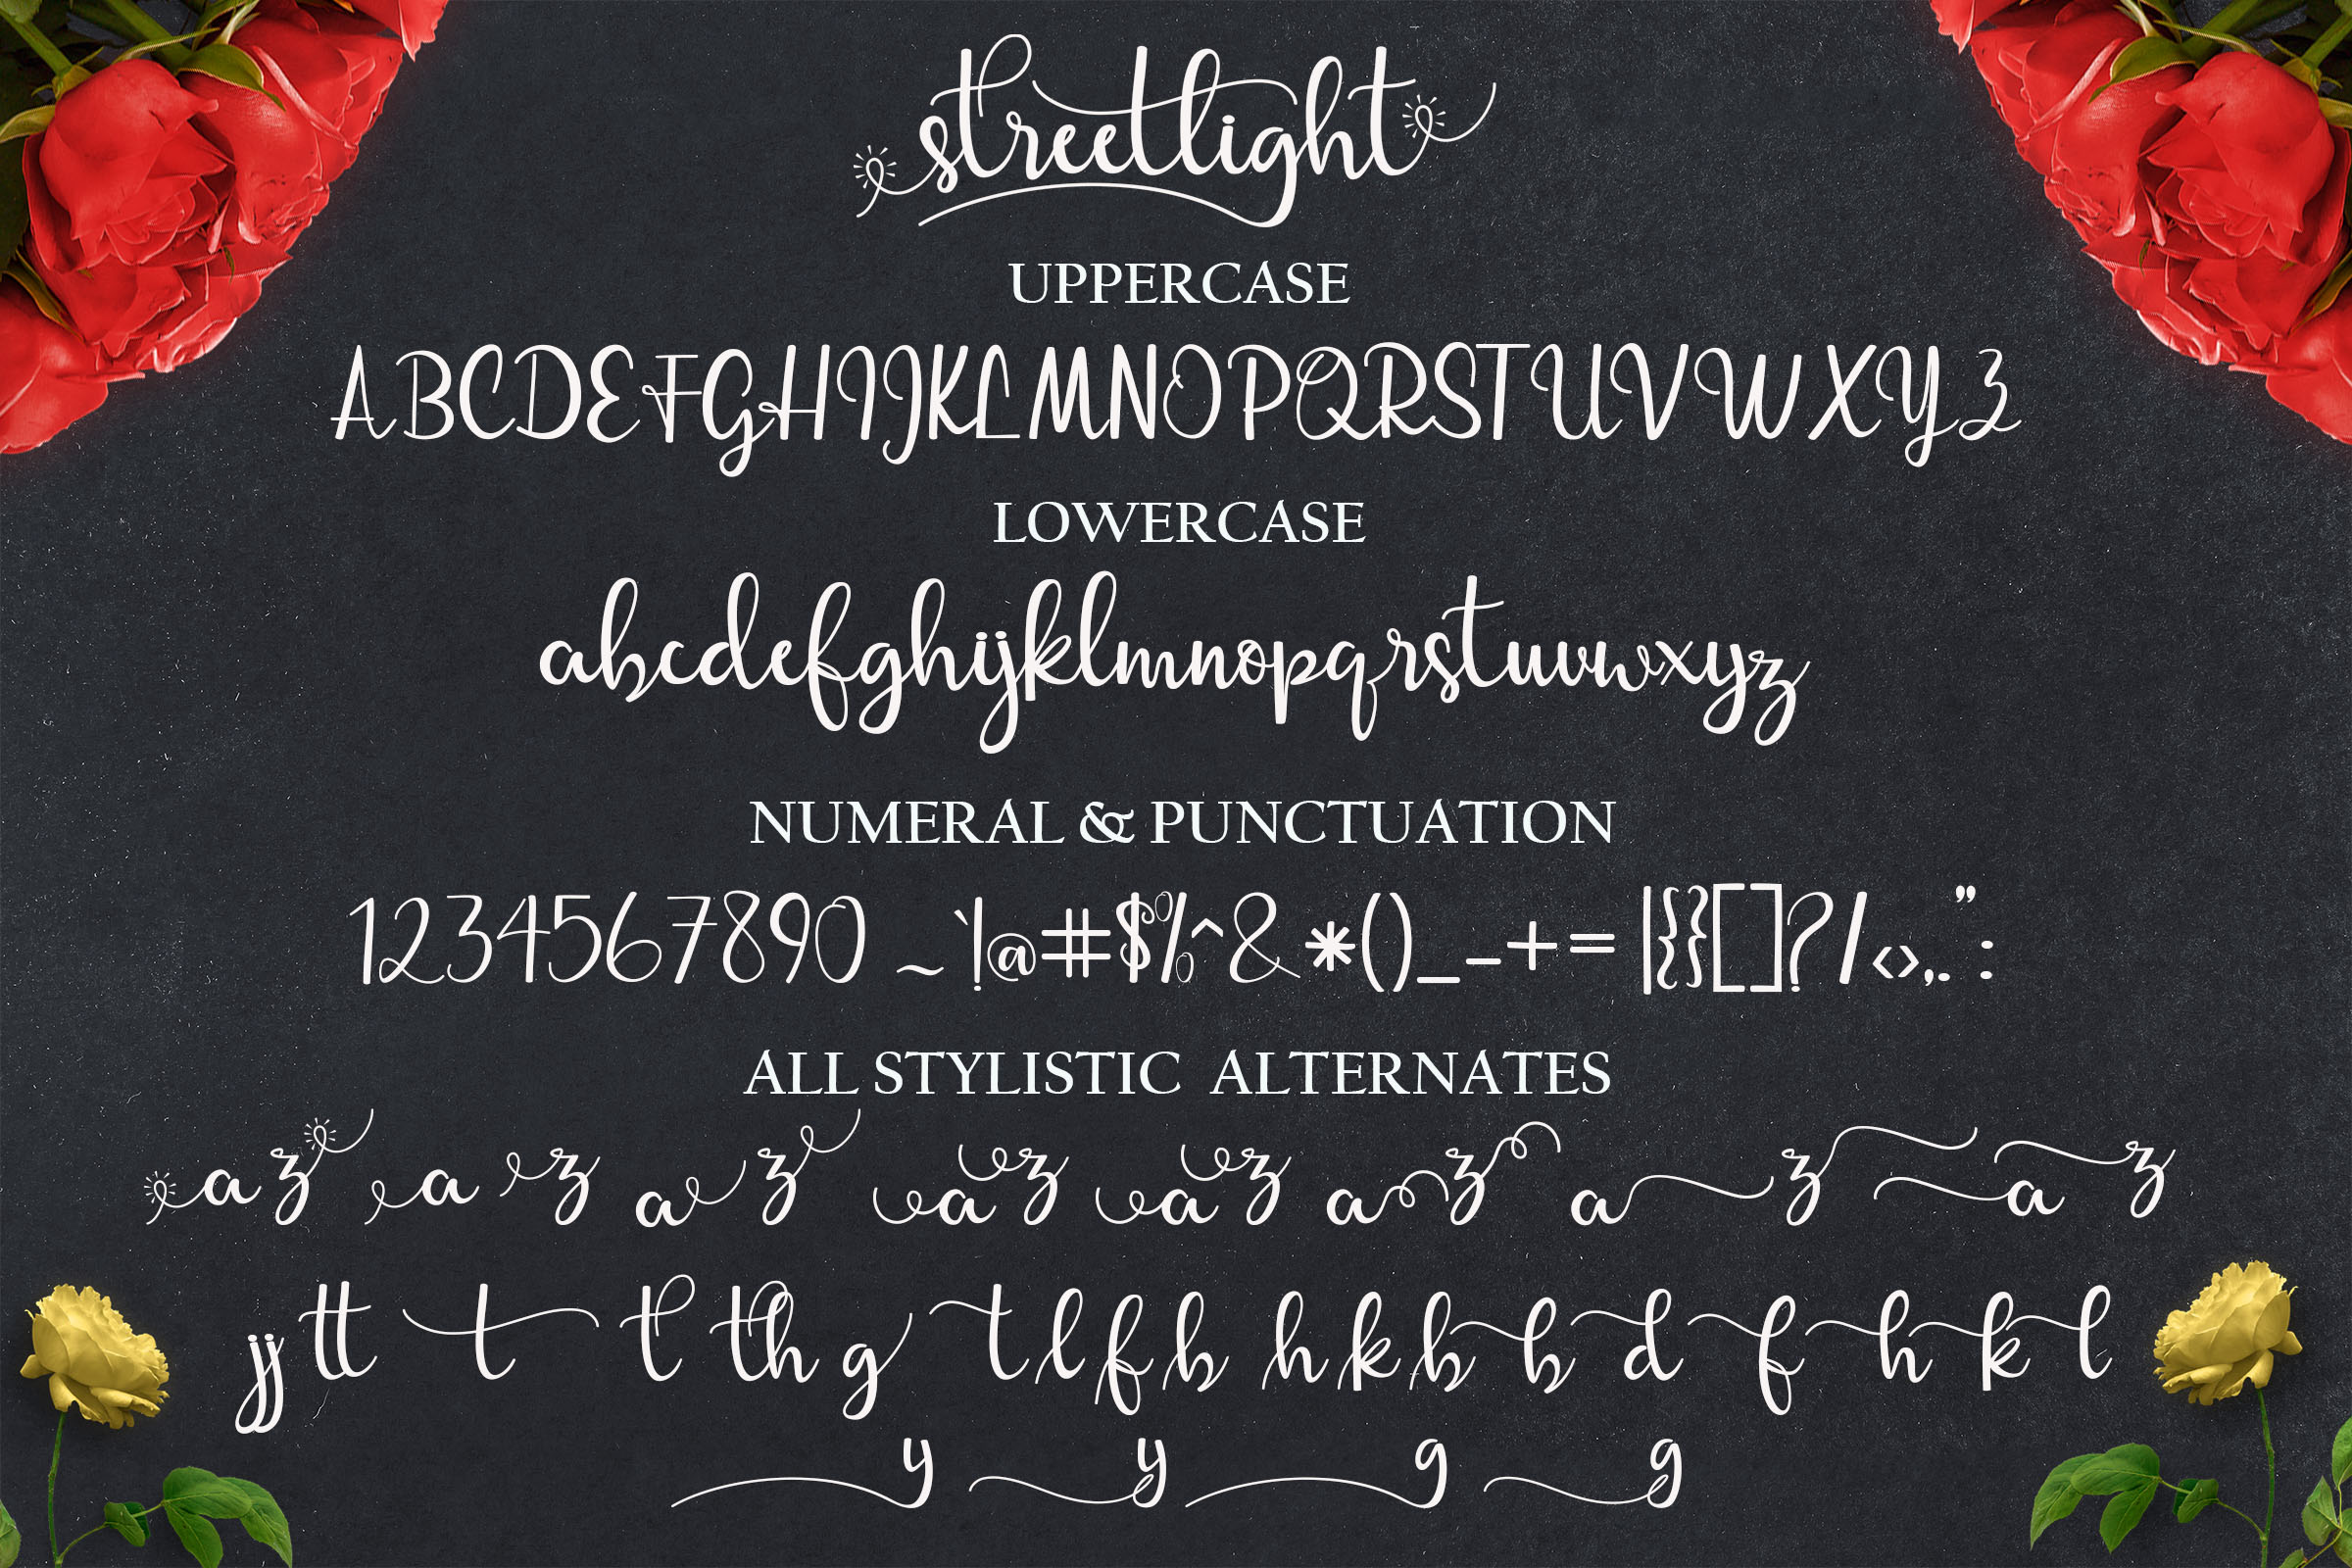 streetlight
UPPERCASE
ABCDEFGHIJKLMNOPQRSTUVWXYZ
LOWERCASE
abcdefghijklmnopqrstuvwxyz
NUMERAL & PUNCTUATION
1234567890 ~`!@#$%^&*()_-+= |{}[]?/<>,.":
ALL STYLISTIC ALTERNATES
a z a z a z a z a z a z a z a z
jj tt t t th g t l f b h k b b d f h k l
y y g g